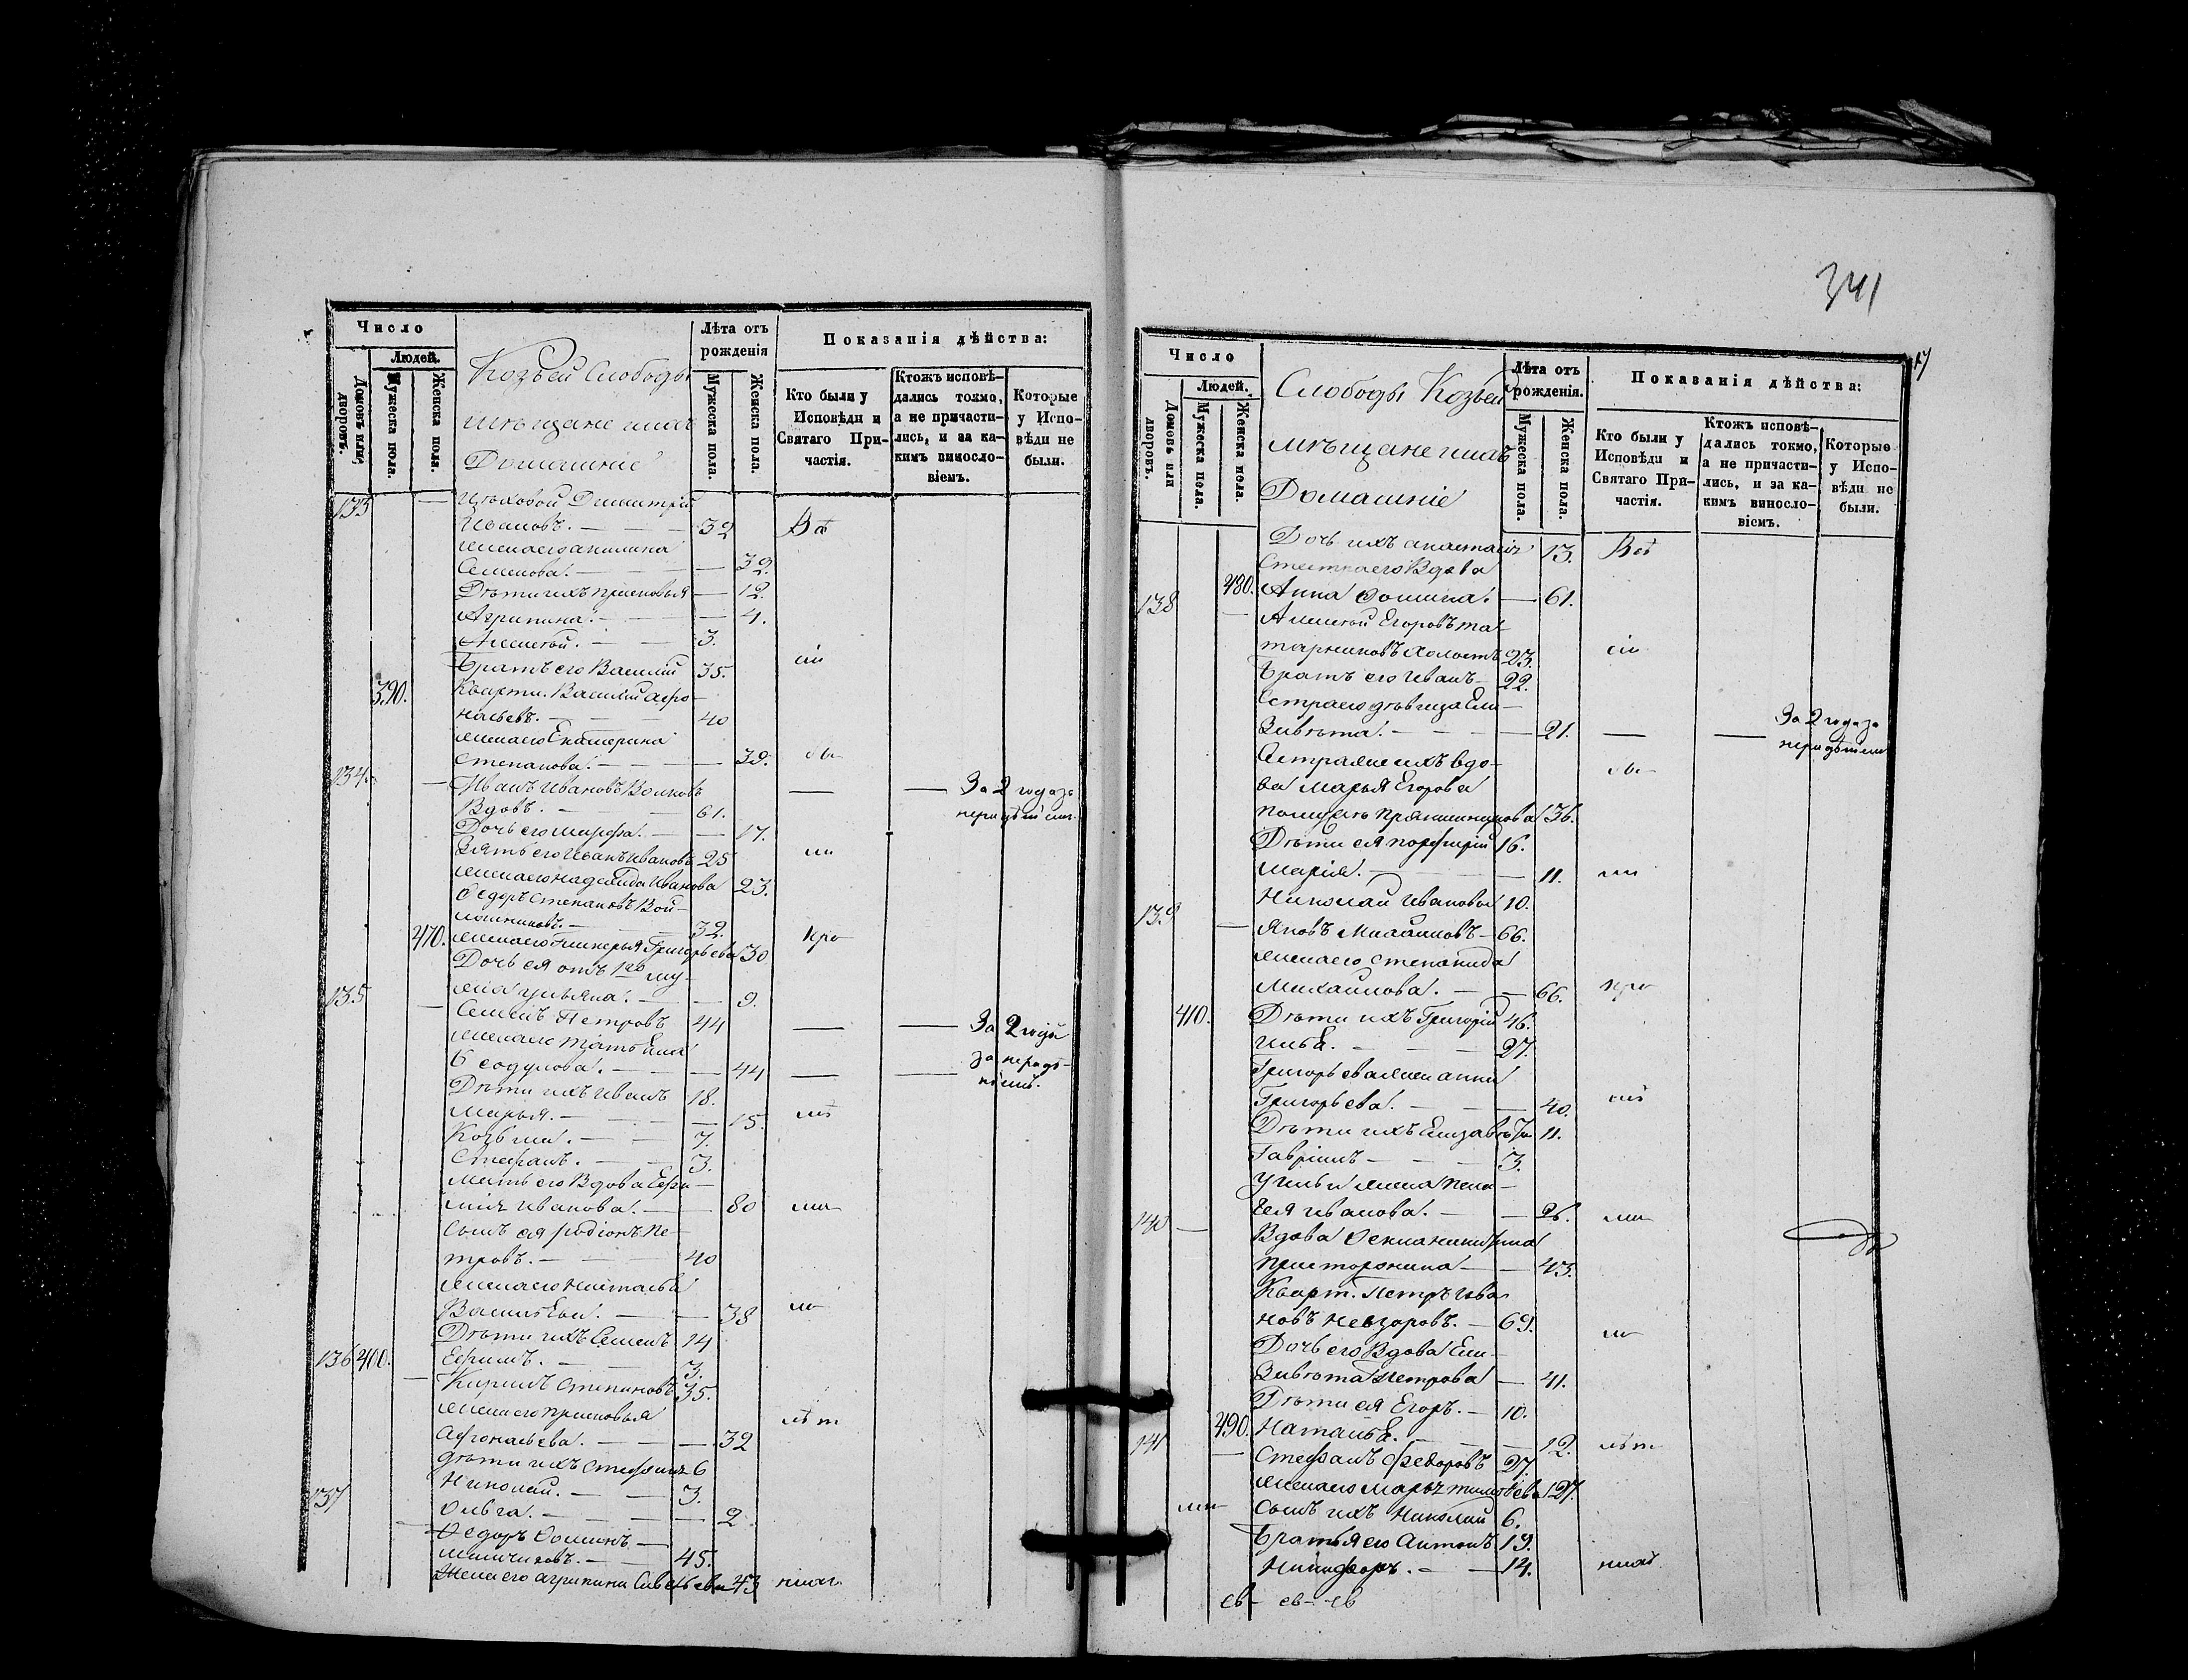 341
17
Число
Людей.
Домовъ или дворовъ.
Мужеска пола.
Женска пола.
Козьей Слободы
мѣщане и ихъ
Домашніе
Лѣта отъ
рожденія
Мужеска пола.
Женска пола.
Показанія дѣйства:
Кто были у
Исповѣди и
Святаго При-
частія.
Ктожъ исповѣ-
дались токмо,
а не причасти-
лись, и за ка-
кимъ винosло-
віемъ.
Которые
у Испо-
вѣди не
были.
133 — Димитрій
Ивановъ. — 32 Всѣ
жена его Акилина
Семенова. — 32.
Дѣти ихъ Прасковья — 12.
Агрипина. — 4.
Алексѣй. — 3.
Братъ его Василій 35. сіи
390. Кварти. Василій Афо-
насьевъ. — 40
жена его Екатерина
Степанова. — 39.
134. — Иванъ Ивановъ Волковъ — — За 2 года за
Вдовъ. — 61.
Дочь его Марфа. — 17.
Зять его Иванъ Ивановъ 25
жена его Надежда Иванова 23.
Федоръ Степановъ Вой-
лошниковъ. — 32.
470. жена его Гликерья Григорьева 30
Дочь ея отъ 1го му-
жа Ульяна. — 9.
135 — Семенъ Петровъ 44 — — За 2 года
жена его Татьяна — — за нерадѣ-
44 ніемъ.
Дѣти ихъ Иванъ 18.
Марья. — 15.
Козьма. — 7.
Стефанъ. — 3.
Мать его Вдова Евфи-
мія Иванова. — 80
Сынъ ея Родіонъ Пе-
тровъ. — 40
жена его Наталья
Васильева. — 38
Дѣти ихъ Семенъ 14
136 400. Ефимъ. — 3.
— Кирилъ Степановъ 35.
жена его Прасковья
Афонасьева. — 32
дѣти ихъ Стефанъ 6
Николай. — 3.
137 Ольга. — 2
— Федоръ Фоминъ —
45.
Жена его Агрипина Савельева 43
Число
Людей.
Домовъ или дворовъ.
Мужеска пола.
Женска пола.
Слободы Козьей
мѣщане и ихъ
Домашніе
Лѣта отъ
рожденія.
Мужеска пола.
Женска пола.
Показанія дѣйства:
Кто были у
Исповѣди и
Святаго При-
частія.
Ктожъ исповѣ-
дались токмо,
а не причасти-
лись, и за ка-
кимъ винosло-
віемъ.
Которые
у Испо-
вѣди не
были.
Дочь ихъ Анастасія 13. Всѣ
Сестра его Вдова
480. Анна Фомина. — 61.
138 — Алексѣй Егоровъ Та-
тарниковъ холостъ 23. сіи
Братъ его Иванъ — 22.
Сестра его дѣвица Ели-
завѣта. — 21. — — За 2 года за
Сестра же ихъ вдо-
ва Марья Егорова
по мужѣ Прянишникова 36.
Дѣти ея Порфирій 16.
Марія. — 11.
Николай Ивановы 10.
139 — Яковъ Михайловъ — 66.
жена его Степанида
Михайлова. — 66.
410. Дѣти ихъ Григорій 46.
Илья. — 27.
Григорьева жена Анна
Григорьева. — 40.
Дѣти ихъ Елизавѣта 11.
Гавріилъ — 3.
У Ильи жена Пела-
гея Иванова. — 26.
140 — Вдова
43.
Кварт. Петръ Ива-
новъ Невзоровъ. — 69.
Дочь его Вдова Ели-
завѣта Петрова — 41.
Дѣти ея Егоръ. — 10.
490. Наталья. — 12.
141 — Стефанъ Федоровъ 27
жена его Марья Тимофеева 27.
Сынъ ихъ Николай 6.
Братья его Антонъ 19.
Никифоръ. — 14.